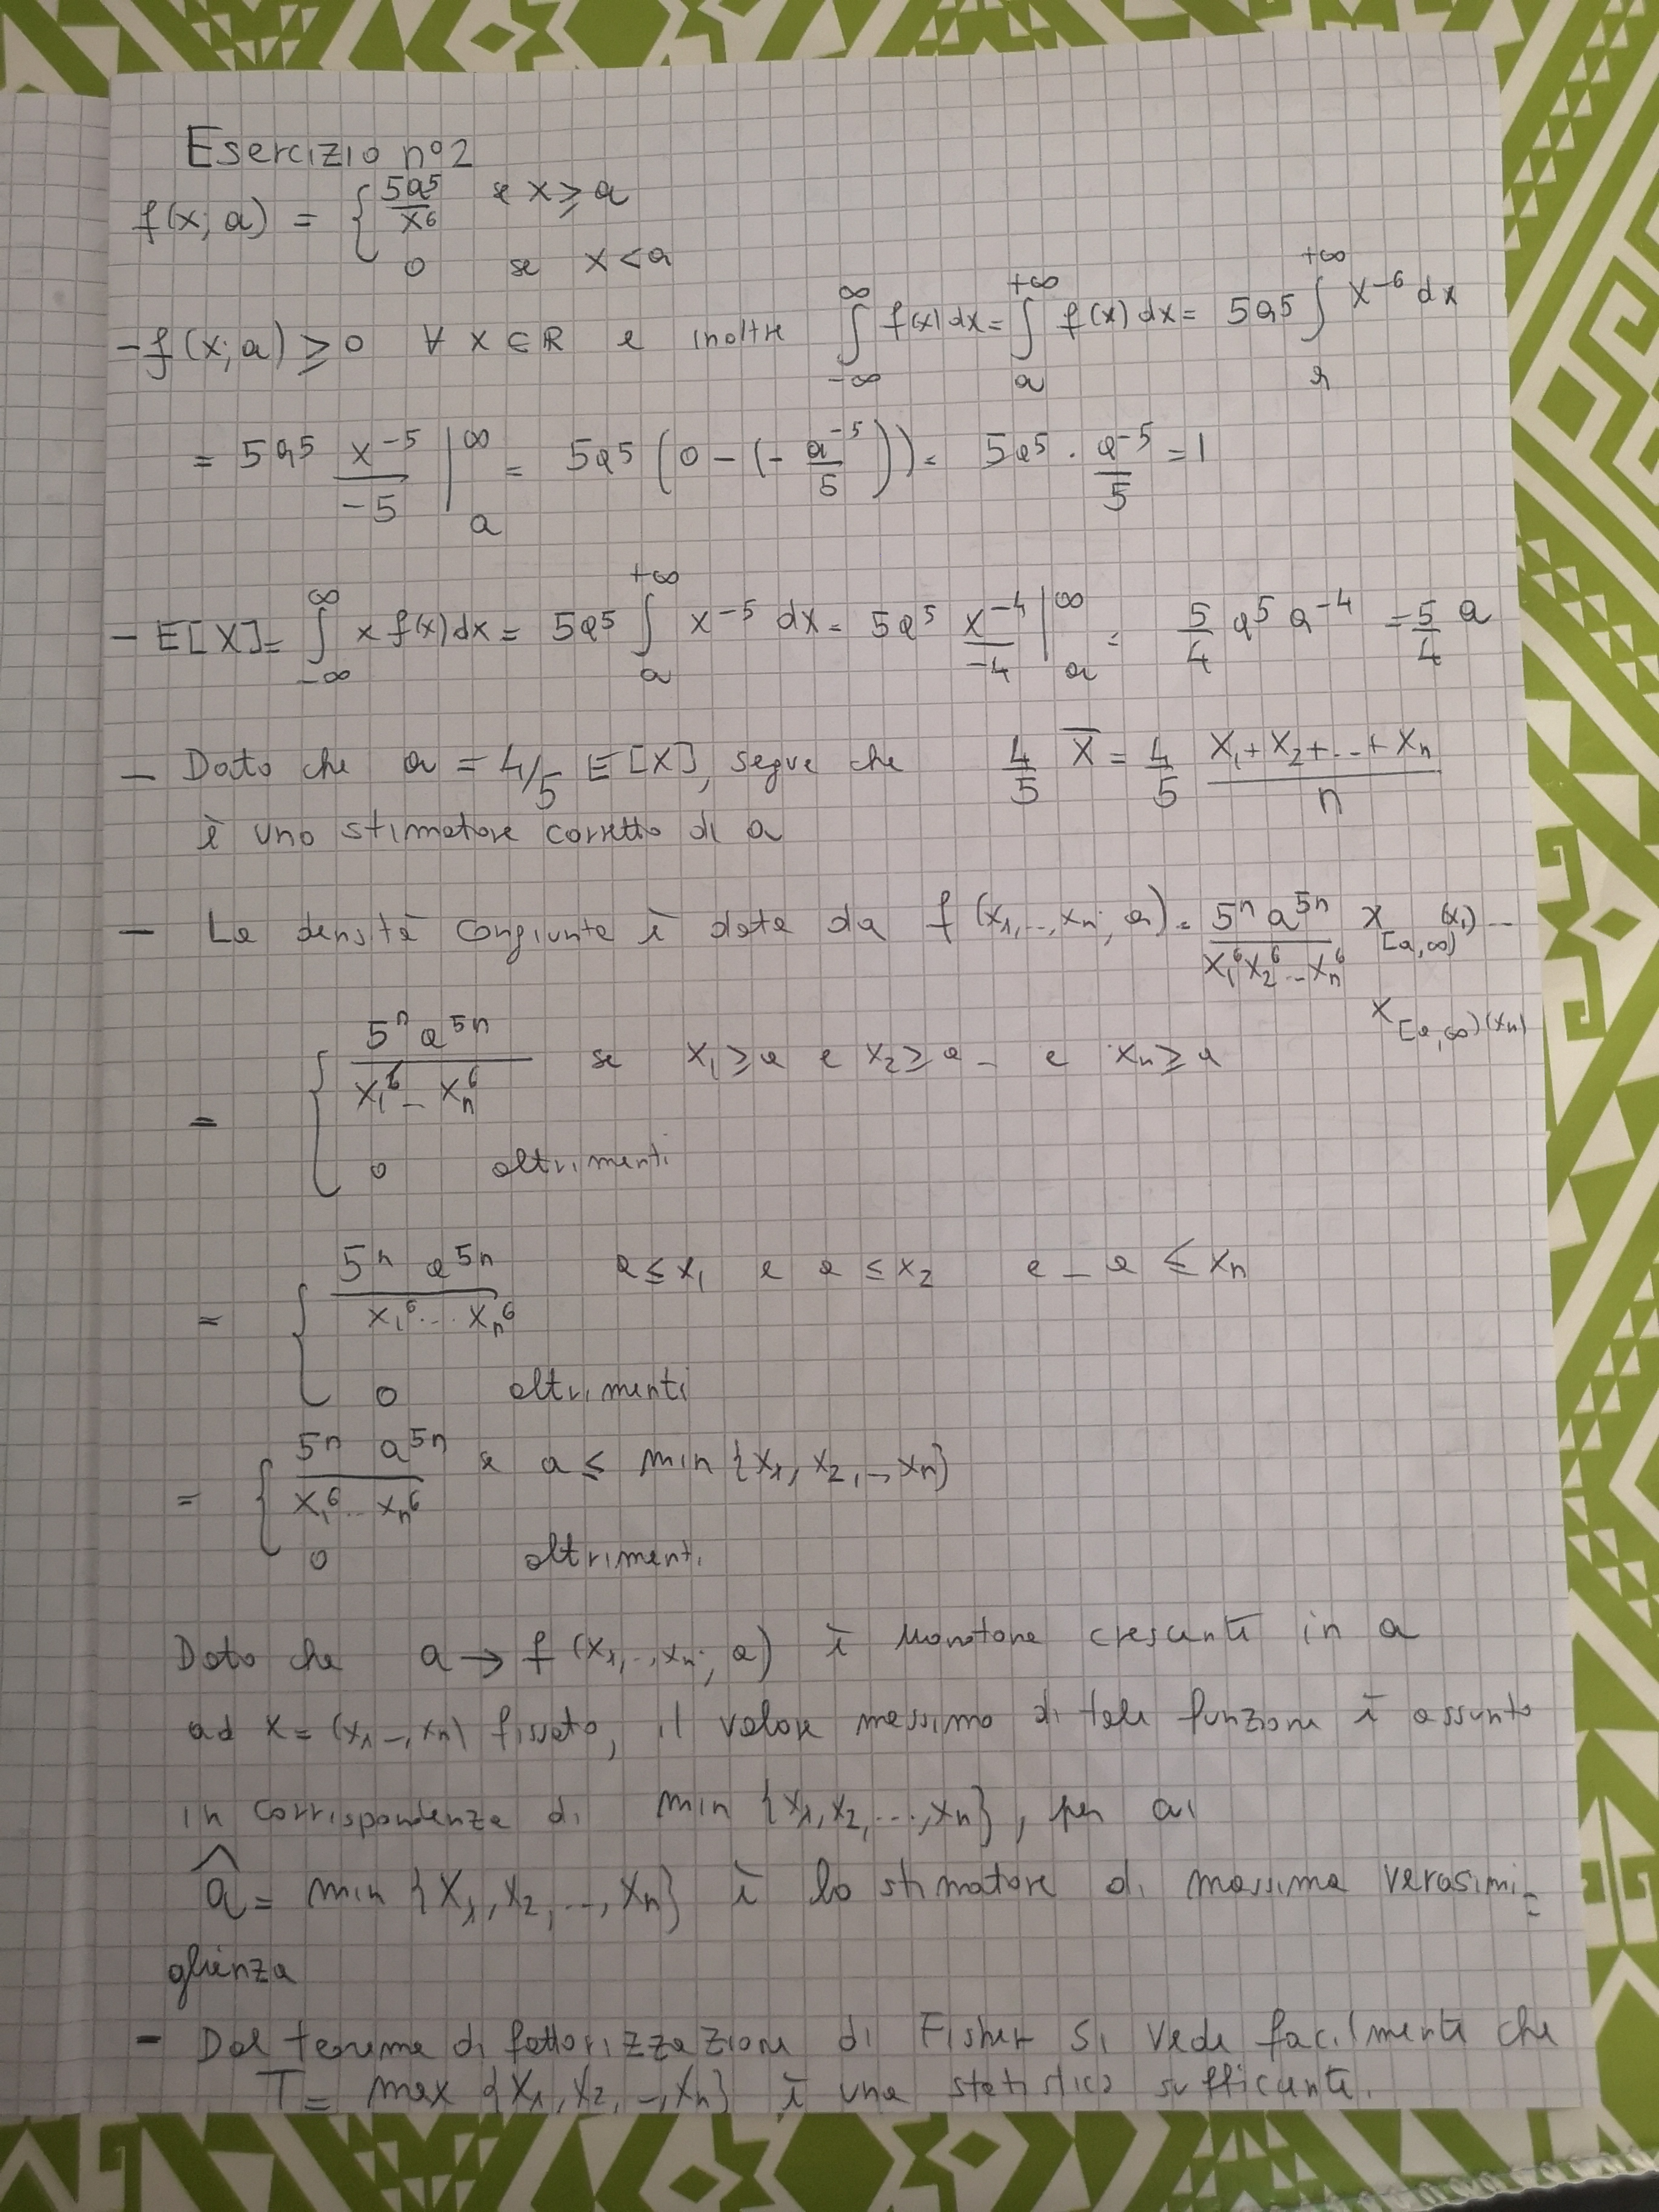 Esercizio n°2
f(x; a) = { 5a⁵/x⁶ se x ≥ a
0 se x < a
- f(x; a) ≥ 0 ∀ x ∈ ℝ e inoltre ∫_{-∞}^{∞} f(x) dx = ∫_a^{+∞} f(x) dx = 5a⁵ ∫_a^{+∞} x⁻⁶ dx
= 5a⁵ x⁻⁵/-5 |_a^∞ = 5a⁵ (0 - (- a⁻⁵/5)) = 5a⁵ · a⁻⁵/5 = 1
- E[X] = ∫_{-∞}^{∞} x f(x) dx = 5a⁵ ∫_a^{+∞} x⁻⁵ dx = 5a⁵ x⁻⁴/-4 |_a^∞ = 5/4 a⁵ a⁻⁴ = 5/4 a
- Dato che a = 4/5 E[X], segue che 4/5 X̄ = 4/5 (X₁ + X₂ + ... + Xₙ)/n
è uno stimatore corretto di a
- La densità congiunta è data da f(x₁, .., xₙ; a) = 5ⁿ a⁵ⁿ / x₁⁶ x₂⁶ ... xₙ⁶ χ_[a,∞)(x₁) ...
χ_[a,∞)(xₙ)
= { 5ⁿ a⁵ⁿ / x₁⁶ ... xₙ⁶ se x₁ ≥ a e x₂ ≥ a ... e xₙ ≥ a
0 altrimenti
= { 5ⁿ a⁵ⁿ / x₁⁶ ... xₙ⁶ a ≤ x₁ e a ≤ x₂ e ... a ≤ xₙ
0 altrimenti
= { 5ⁿ a⁵ⁿ / x₁⁶ ... xₙ⁶ se a ≤ min {x₁, x₂, .., xₙ}
0 altrimenti
Dato che a → f(x₁, .., xₙ; a) è monotona crescente in a
ad x = (x₁ .., xₙ) fissato, il valore massimo di tale funzione è assunto
in corrispondenza di min {x₁, x₂, ..., xₙ}, per cui
â = min {X₁, X₂, .., Xₙ} è lo stimatore di massima verosimi=
glienza
- Dal teorema di fattorizzazione di Fisher si vede facilmente che
T = max {X₁, X₂, .., Xₙ} è una statistica sufficiente.